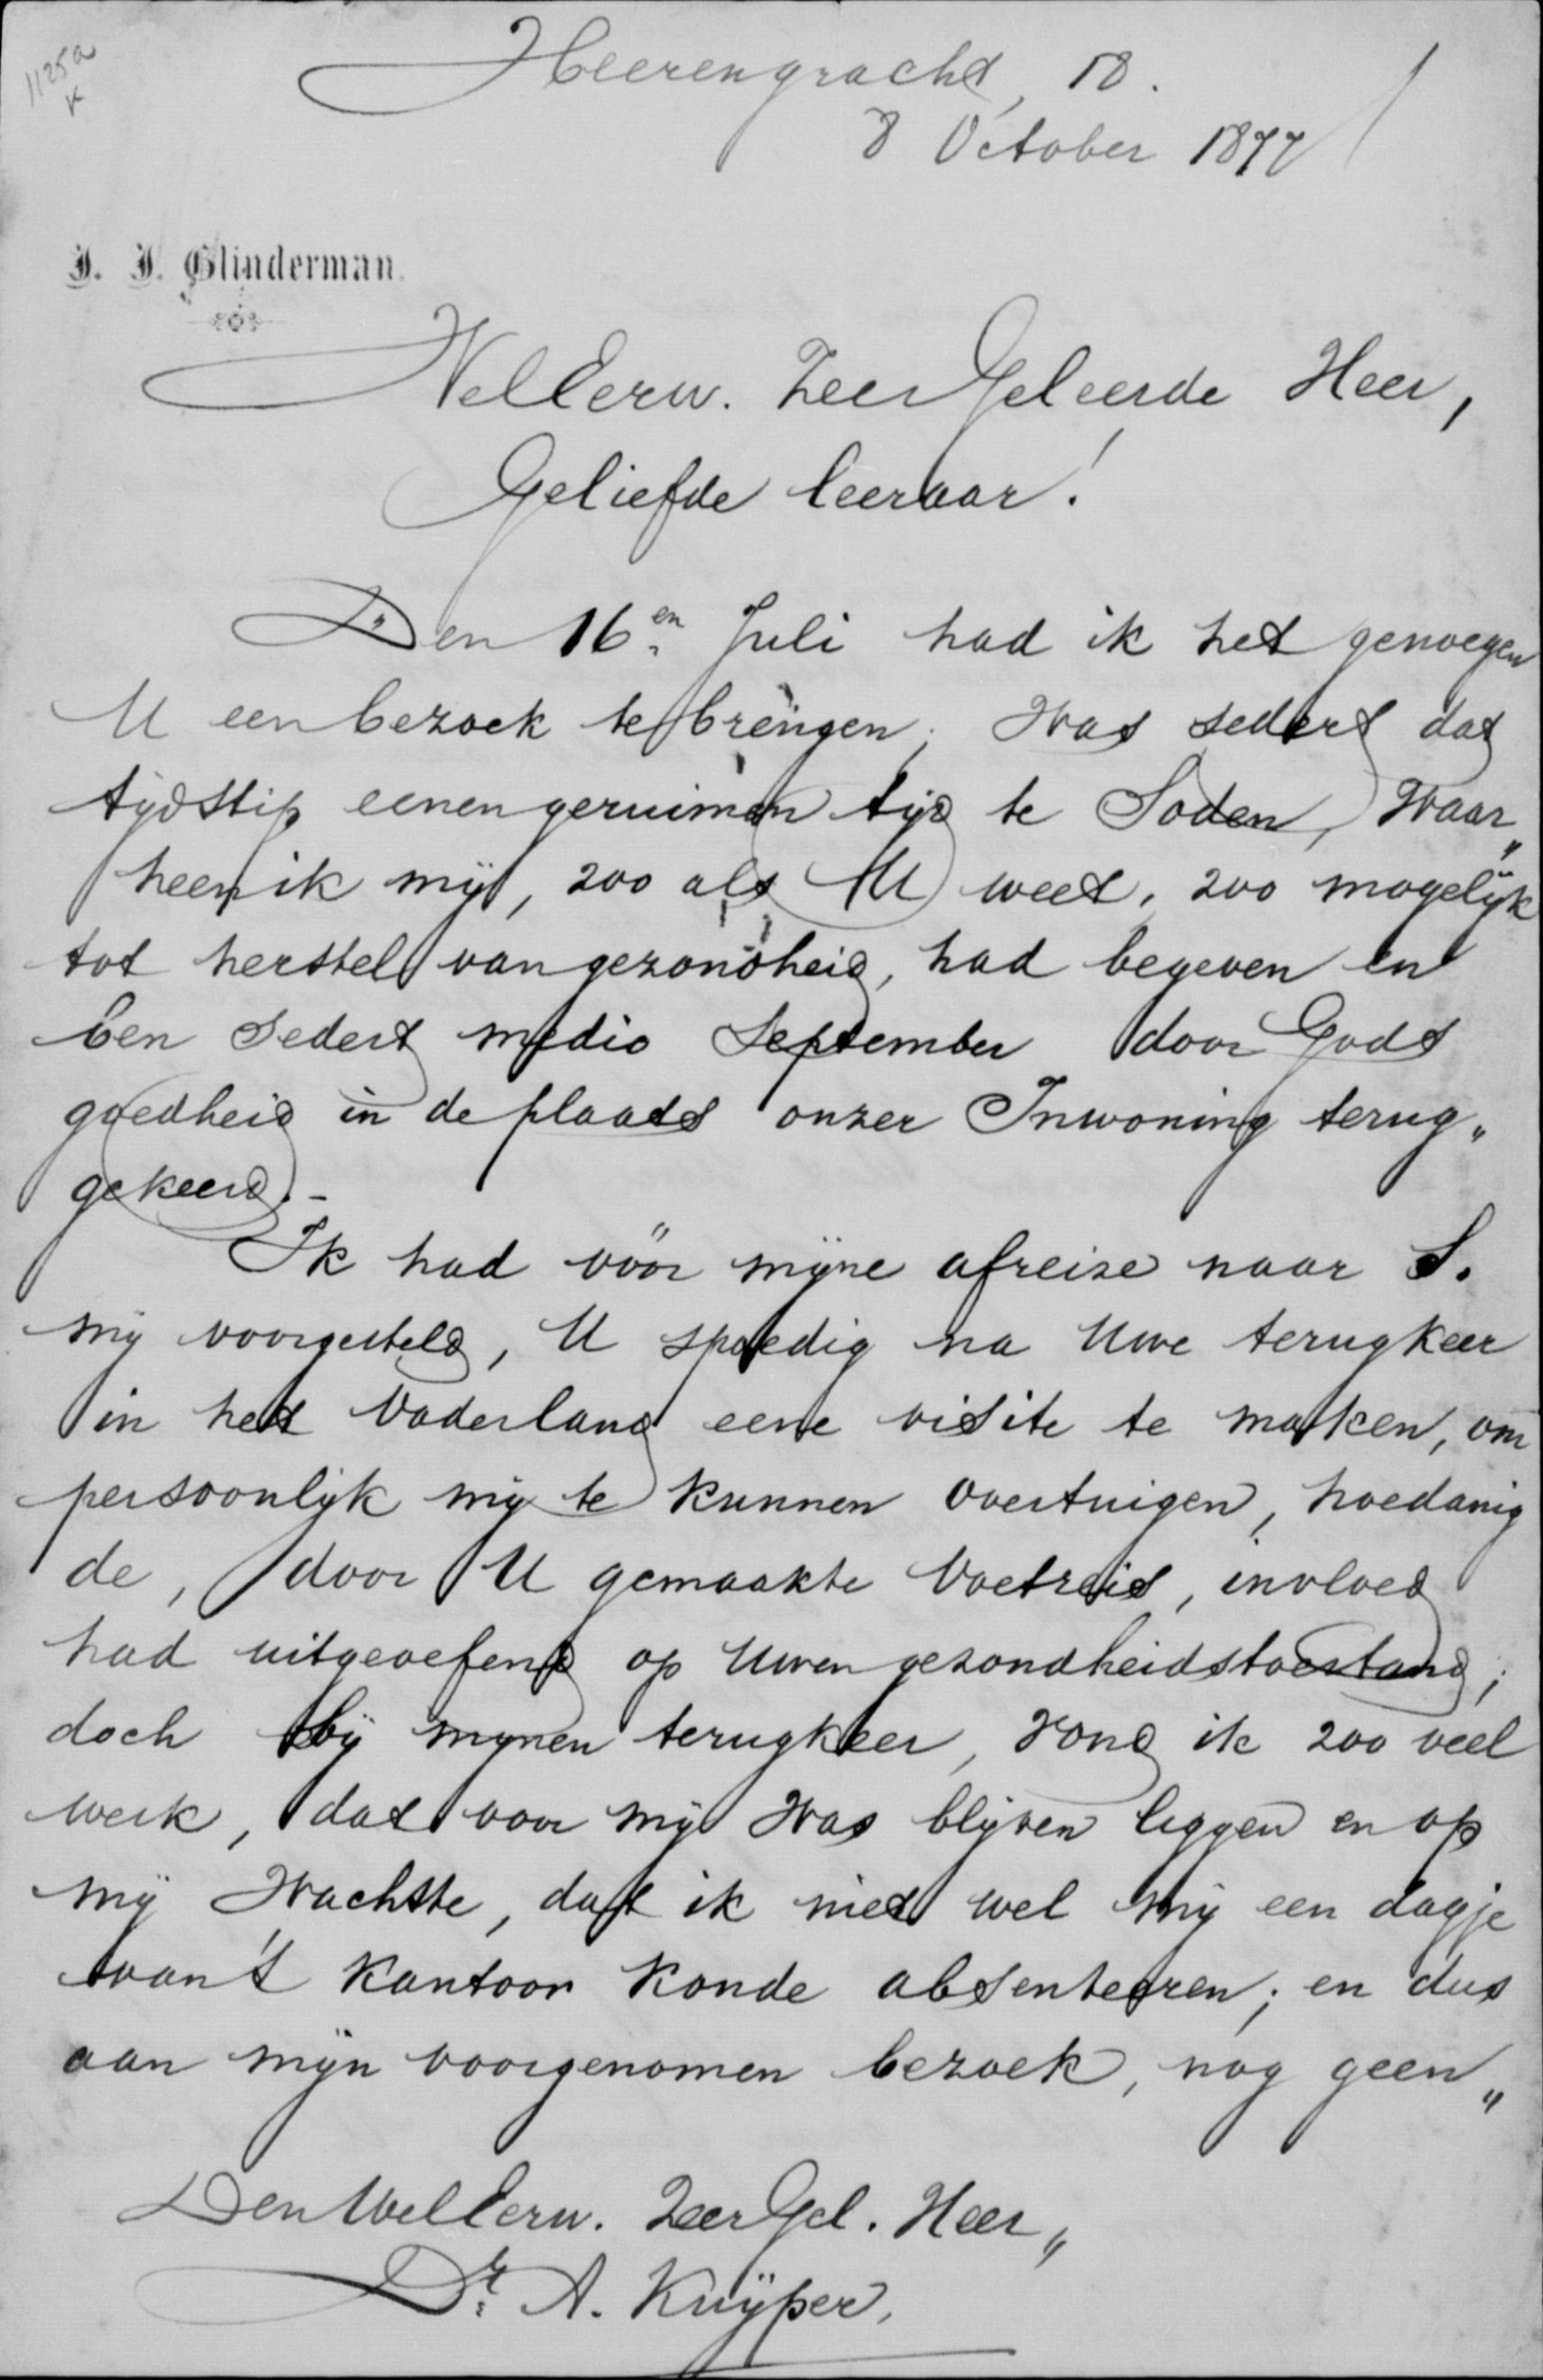 1125a
K
Heerengracht, 18.
8 October 1877
J. J. Glinderman.
WelEerw. Zeer Geleerde Heer,
Geliefde leeraar!
Den 16en Juli had ik het genoegen
U een bezoek te brengen; was sedert dat
tijdstip eenen geruimen tijd te Soden, waar„
heen ik mij, zoo als U weet, zoo mogelijk
tot herstel van gezondheid, had begeven en
ben sedert medio September door Gods
goedheid in de plaats onzer Inwoning terug„
gekeerd.-
Ik had vóór mijne afreize naar S.
mij voorgesteld, U spoedig na Uwe terugkeer
in het Vaderland eene visite te maken, om
persoonlijk mij te kunnen overtuigen, hoedanig
de, door U gemaakte Voetreis, invloed
had uitgeoefend op Uwen gezondheidstoestand;
doch bij mijnen terugkeer, vond ik zoo veel
werk, dat voor mij was blijven liggen en op
mij wachtte, dat ik niet wel mij een dagje
van 't kantoor konde absenteeren; en dus
aan mijn voorgenomen bezoek, nog geen„
Den WelEerw. ZeerGel. Heer„
Dr. A. Kuijper,